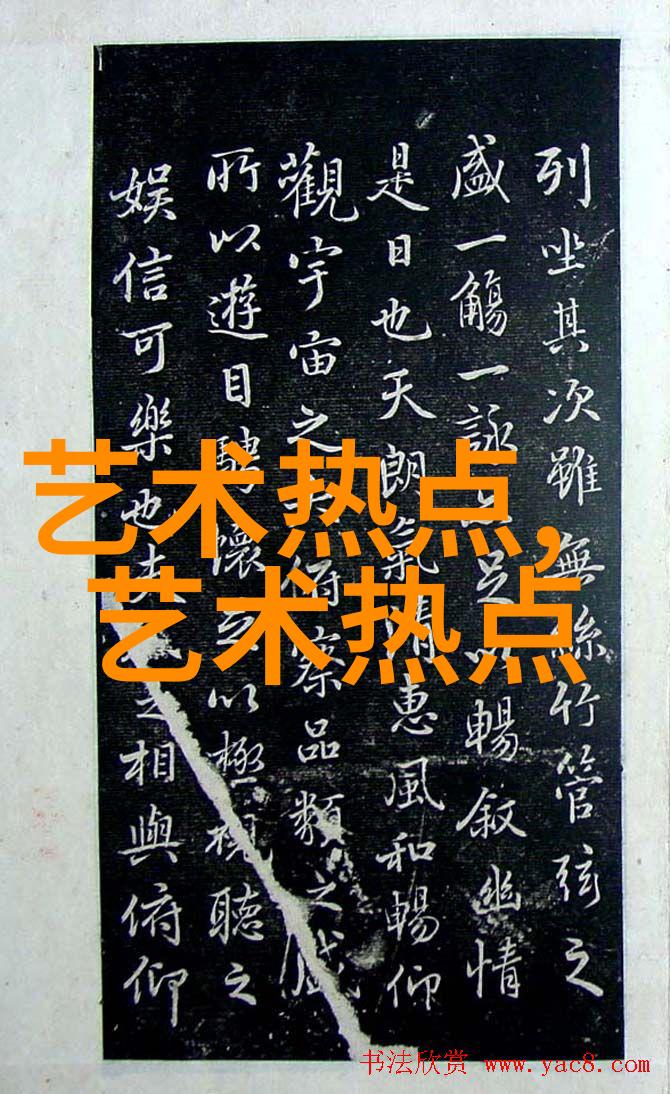 列坐其次雖無絲竹管弦之
盛一觴一詠亦足以暢叙幽情
是日也天朗氣清惠風和暢仰
觀宇宙之大俯察品類之盛
所以遊目騁懷足以極視聽之
娱信可樂也夫之相與俯仰
艺术热点,
艺术热点
书法欣赏 www.yac8.com